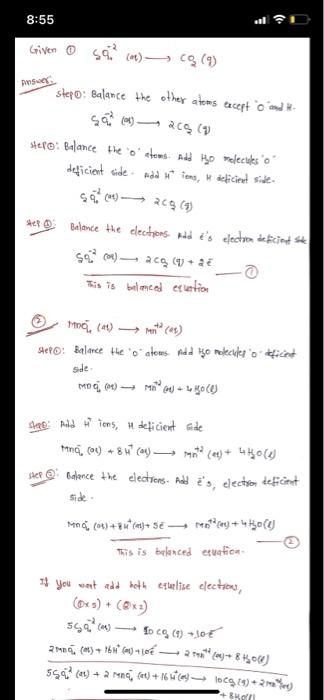 8:55
Given ① C₂O₄⁻² (aq) ⟶ CO₂ (g)
Answer:
step①: Balance the other atoms except 'O' and H.
C₂O₄⁻² (aq) ⟶ 2CO₂ (g)
step②: Balance the 'O' atoms. Add H₂O molecules 'O'
deficient side. Add H⁺ ions, H deficient side.
C₂O₄⁻² (aq) ⟶ 2CO₂ (g)
step③: Balance the electrons. Add e's electron deficient side
C₂O₄⁻² (aq) ⟶ 2CO₂ (g) + 2e ―①
This is balanced equation
② MnO₄⁻ (aq) ⟶ Mn⁺² (aq)
step①: Balance the 'O' atoms Add H₂O molecules 'O'-deficient
side.
MnO₄⁻ (aq) ⟶ Mn⁺² (aq) + 4H₂O(l)
step②: Add H⁺ ions, H deficient side
MnO₄⁻ (aq) + 8H⁺ (aq) ⟶ Mn⁺² (aq) + 4H₂O(l)
step③: Balance the electrons. Add e's, electron deficient
side.
MnO₄⁻ (aq) + 8H⁺(aq) + 5e ⟶ Mn⁺²(aq) + 4H₂O(l) ―②
This is balanced equation.
If you want add both equalise electrons,
(①x5) + (②x2)
5C₂O₄⁻² (aq) ⟶ 10CO₂ (g) + 10e
2MnO₄⁻ (aq) + 16H⁺ (aq) + 10e ⟶ 2Mn⁺² (aq) + 8H₂O(l)
5C₂O₄⁻² (aq) + 2MnO₄⁻ (aq) + 16H⁺(aq) ⟶ 10CO₂ (g) + 2Mn⁺²(aq)
+ 8H₂O(l)